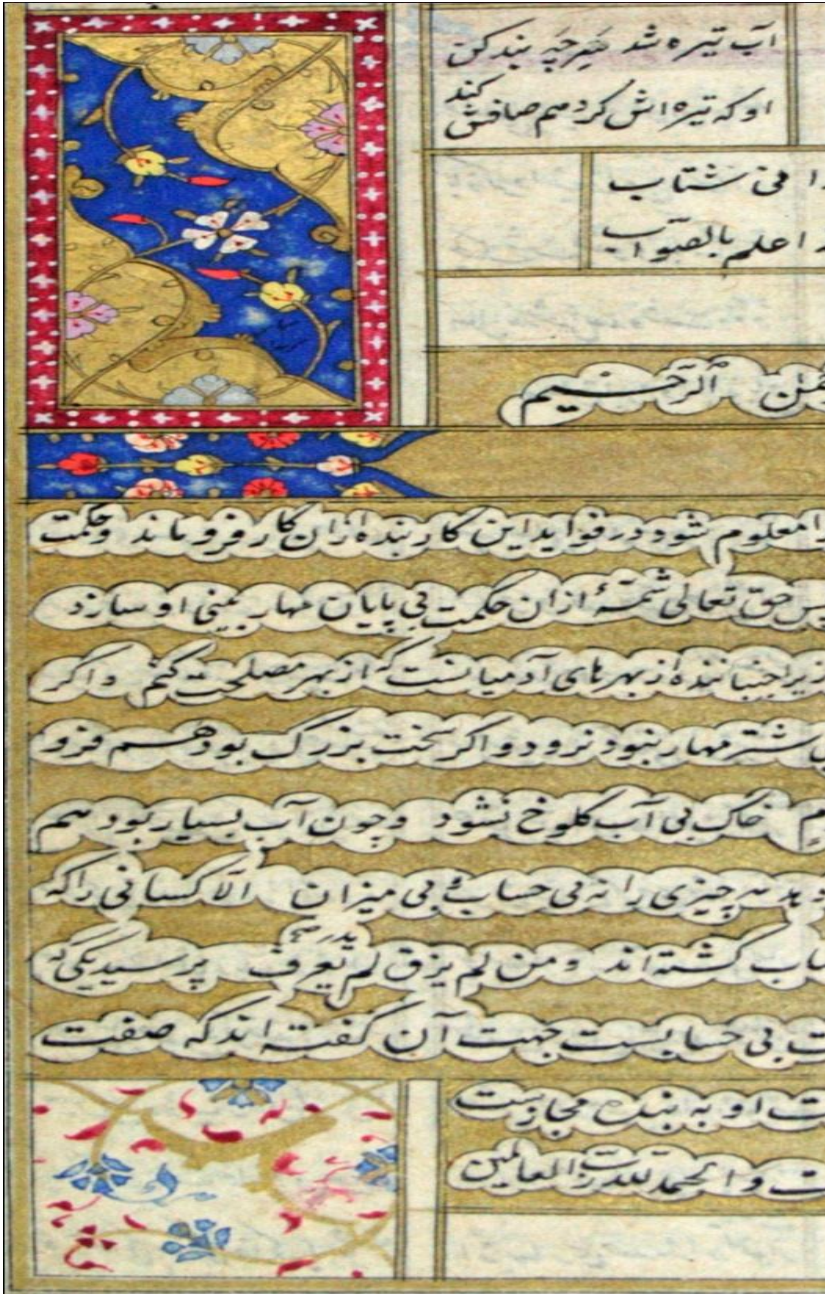 آب تیره شد سر چه بند کن
او که تیره اش کرد هم صافش کند
نی شتاب
اعلم بالصّواب
الرّحیم
معلوم شود در فواید این کار بنده ازان کار فرو ماند و حکمت
پس حق تعالی شمّهٔ ازان حکمت بی پایان مهار بینی او سازد
زیرا جنباننده از بهرهای آدمیانست که از بهر مصلحت کنم و اکر
شتر مهار نبود نرود و اکر سخت بزرک بود هم فرو
خاک بی آب کلوخ نشود و چون آب بسیار بود هم
دهد هر چیزی را نه بی حساب و بی میزان الّا کسانی را که
کشته اند و من لم یزق لم یعرف پرسید یکی که
بی حسابست جهت آن کفته اند که صفت
او به بنده مجازست
و الحمد لله ربّ العالمین